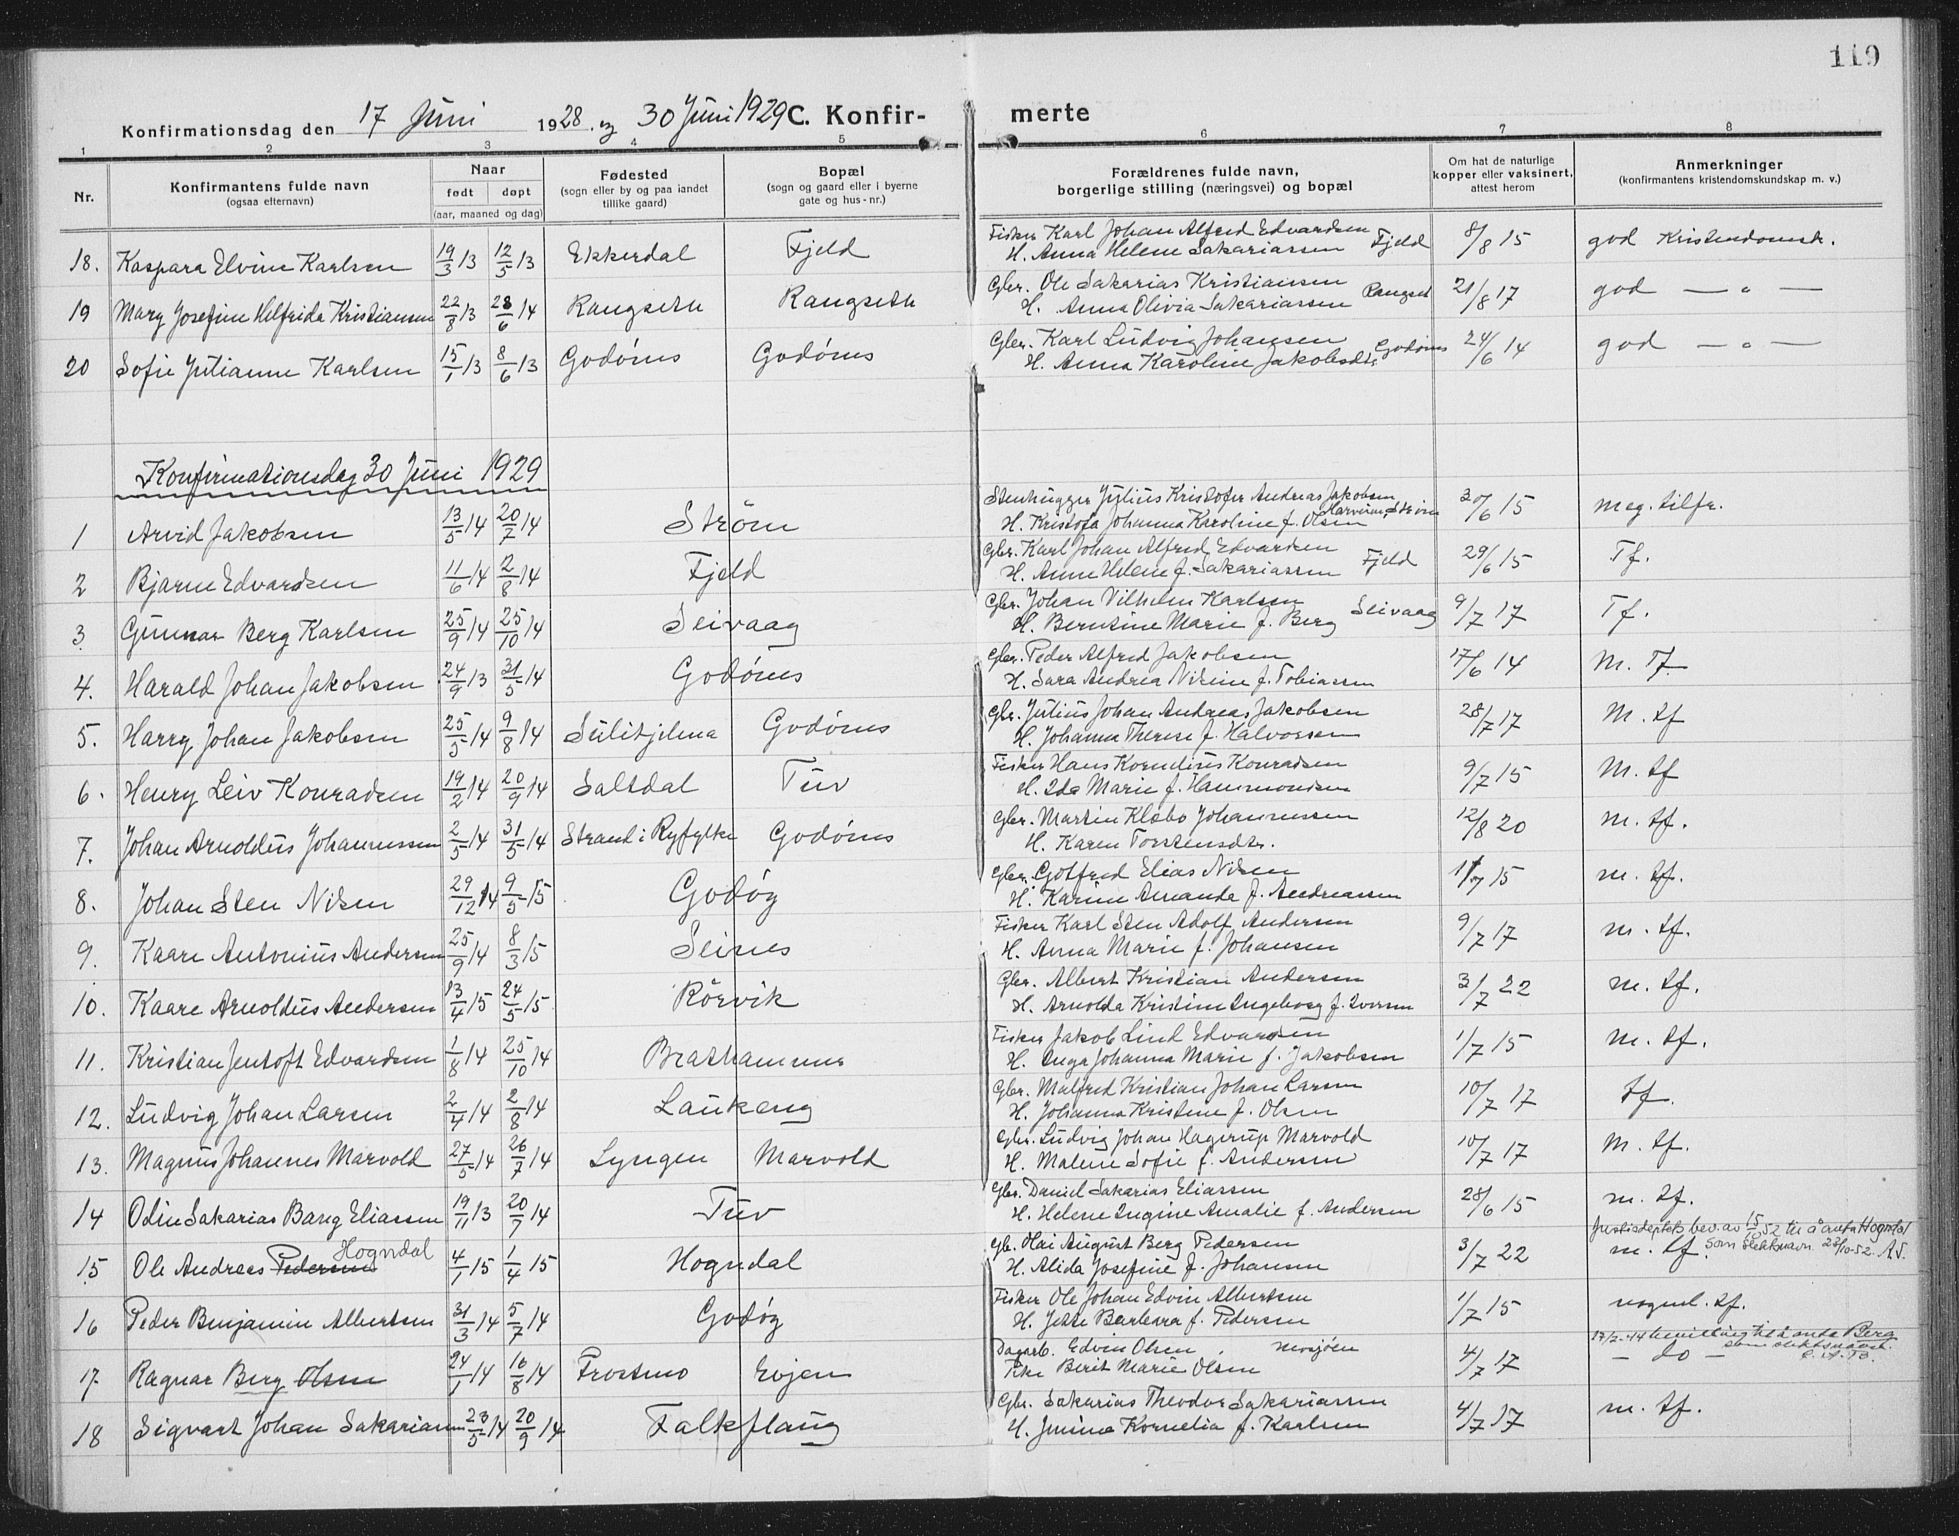 119
Konfirmationsdag den 17 Juni 1928. og 30 Juni 1929 C. Konfir- merte
1 2 3 4 5 6 7 8
Nr.
Konfirmantens fulde navn
(ogsaa efternavn)
Naar
født døpt
(aar, maaned og dag)
Fødested
(sogn eller by og paa landet
tillike gaard)
Bopæl
(sogn og gaard eller i byerne
gate og hus-nr.)
Forældrenes fulde navn,
borgerlige stilling (næringsvei) og bopæl
Om hat de naturlige
kopper eller vaksinert,
attest herom
Anmerkninger
(konfirmantens kristendomskundskap m. v.)
Fisker Karl Johan Alfred Edvardsen
18. Kaspara Elvine Karlsen 19/3 13 12/5 13 Ekkerdal Fjeld H. Anna Helene Sakariassen Fjeld 8/8 15 god Kristendomsk.
Gbr. Ole Sakarias Kristiansen
19 Mary Josefine Helfrida Kristiansen 22/8 13 28/6 14 Rangseth Rangseth H. Anna Olivia Sakariassen Rangset 21/8 17 god — " —
Gbr. Karl Ludvig Johansen
20 Sofie Julianne Karlsen 15/1 13 8/6 13 Godønes Godønes H. Anna Karoline Jakobsdt. Godønes 24/6 14 god — " —
Konfirmationsdag 30 Juni 1929
Stenhugger Julius Kristofer Andreas Jakobsen
1 Arvid Jakobsen 13/5 14 20/7 14 Strøm H. Kristofa Johanna Karoline f. Olsen, Strøm 30/6 15 meg. tilfr.
Gbr. Karl Johan Alfred Edvardsen
2 Bjarne Edvardsen 11/6 14 2/8 14 Fjeld H. Anne Helene f. Sakariassen Fjeld 29/6 15 Tf.
Gbr. Johan Vilhelm Karlsen
3. Gunnar Berg Karlsen 25/9 14 25/10 14 Seivaag H. Berntine Marie f. Berg Seivaag 9/7 17 Tf.
Gbr. Peder Alfred Jakobsen
4. Harald Johan Jakobsen 24/9 13 31/5 14 Godønes H. Sara Andrea Nisine f. Tobiassen 17/6 14 M. Tf.
Gbr. Julius Johan Andreas Jakobsen
5. Harry Johan Jakobsen 25/5 14 9/8 14 Sulitjelma Godønes H. Johanna Therese f. Halvorsen 28/7 17 M. tf
Fisker Hans Kornelius Konradsen
6. Henry Leiv Konradsen 19/2 14 20/9 14 Saltdal Tuv H. Ida Marie f. Hammondsen 9/7 15 M. tf
Gbr. Martin Klæbo Johannessen
7. Johan Arnoldus Johannessen 2/5 14 31/5 14 Strand i Ryfylke Godønes H. Karen Torstensdtr. 12/8 20 m. tf.
Gbr. Gotfred Elias Nilsen
8. Johan Sten Nilsen 29/12 14 9/5 15 Godøy H. Karine Amanda f. Andreassen 1/7 15 m. tf.
Fisker Karl Sten Adolf Andersen
9. Kaare Antonius Andersen 25/9 14 8/3 15 Seines H. Anna Marie f. Johansen 9/7 17 m. tf.
Gbr. Albert Kristian Andersen
10. Kaare Arnoldus Andersen 13/4 15 24/5 15 Rörvik H. Arnolda Kristine Ingeborg f. Iversen 3/7 22 m. tf.
Fisker Jakob Lind Edvardsen
11. Kristian Jentoft Edvardsen 1/8 14 25/10 14 Brathammer H. Inga Johanna Marie f. Jakobsen 1/7 15 m. tf.
Gbr. Malfred Kristian Johan Larsen
12. Ludvig Johan Larsen 2/4 14 2/8 14 Laukeng H. Johanna Kristine f. Olsen 10/7 17 tf.
Gbr. Ludvig Johan Hagerup Marvold
13. Magnus Johannes Marvold 27/5 14 26/7 14 Lyngen Marvold H. Malene Sofie f. Andersen 10/7 17 M. tf.
Gbr. Daniel Sakarias Eliassen
14 Odin Sakarias Bang Eliassen 19/11 13 20/7 14 Tuv H. Helene Ingine Amalie f. Andersen 28/6 15 m. tf.
Justisdeptets bev. av 15/10 52 til å anta Hogndal
som slektsnavn 22/10-52. AS.
Gb. Hai August Berg Pedersen
15 Ole Andreas Pedersen Hogndal 4/1 15 1/4 15 Hogndal H. Alida Josefine f. Johansen 3/7 22 m. tf.
Fisker Ole Johan Edvin Albertsen
16 Peder Benjamin Albertsen 31/3 14 5/7 14 Godøy H. Jette Barbara f. Pedersen 1/7 15 nogenl. tf.
17/2-44 bevilling til å anta Berg
som slektsnavn.
Dagarb. Edvin Olsen, Mosjøen
17 Ragnar Berg Olsen 24/1 14 16/8 14 Frostmo Evjen Pike Berit Marie Olsen 4/7 17 — do —
Gbr. Sakarias Theodor Sakariassen
18 Sigvart Johan Sakariassen 23/5 14 20/9 14 Falkflaug H. Jensine Kornelia f. Karlsen 4/7 17 m. tf.